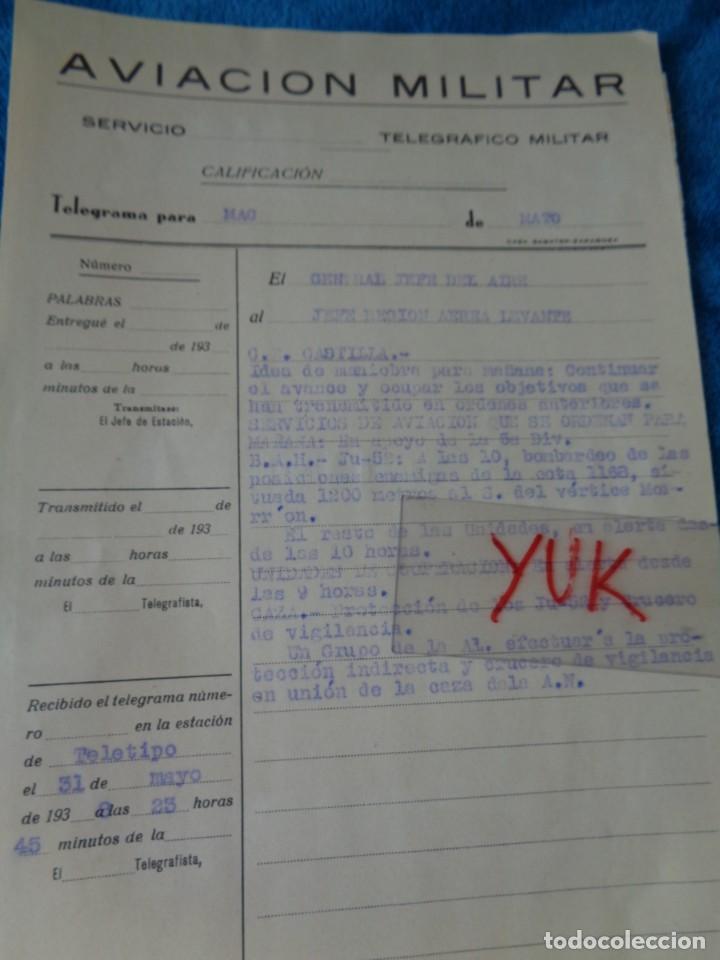 AVIACION MILITAR
SERVICIO TELEGRAFICO MILITAR
CALIFICACIÓN
Telegrama para MAC de MATO
CASA SABATER-ZARAGOZA
Número
PALABRAS
Entregué el de
de 193
a las horas
minutos de la
Transmítase:
El Jefe de Estación,
Transmitido el de
de 193
a las horas
minutos de la
El Telegrafista,
Recibido el telegrama núme-
ro en la estación
de Teletipo
el 31 de mayo
de 193 8 a las 23 horas
45 minutos de la
El Telegrafista,
El GENERAL JEFE DEL AIRE
al JEFE REGION AEREA LEVANTE
C. E. CASTILLA.-
Idea de maniobra para mañana: Continuar
el avance y ocupar los objetivos que se
han transmitido en ordenes anteriores.
SERVICIOS DE AVIACION QUE SE ORDENAN PARA
MAÑANA: En apoyo de la 5a Div.
B.A.H.- Ju-52: A las 10, bombardeo de las
posiciones enemigas de la cota 1168, si-
tuada 1200 metros al S. del vértice Mo-
rr'on.
El resto de las Unidades, en alerta des-
de las 10 horas.
UNIDADES DE COOPERACION: En alerta desde
las 9 horas.
CAZA.- Protección de los Ju-52 y crucero
de vigilancia.
Un Grupo de la AL. efectuar'a la pro-
tección indirecta y crucero de vigilancia
en unión de la caza dela A.N.
YUK
todocoleccion